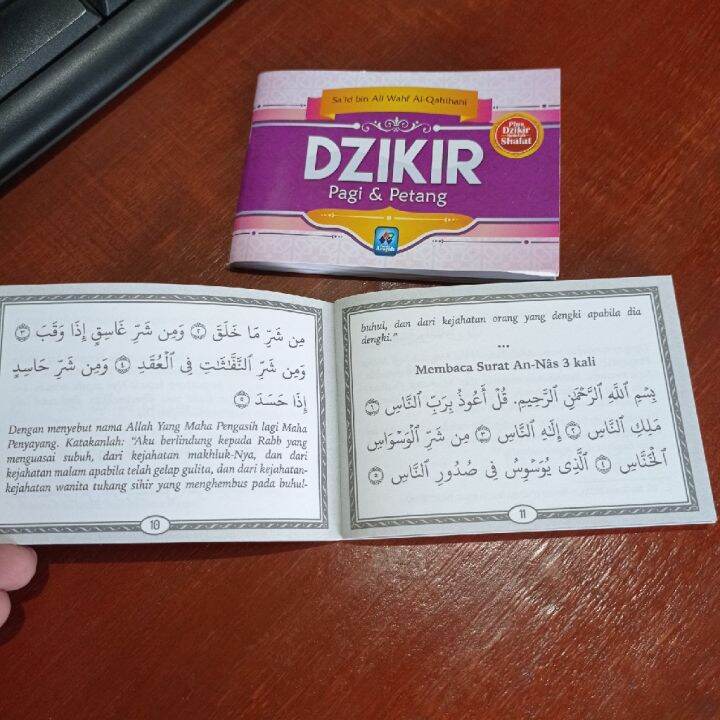 Sa'id bin Ali Wahf Al-Qahthani
DZIKIR
Pagi & Petang
Plus
Dzikir
Shalat
مِن شَرِّ مَا خَلَقَ ۝٢ وَمِن شَرِّ غَاسِقٍ إِذَا وَقَبَ ۝٣
وَمِن شَرِّ ٱلنَّفَّـٰثَـٰتِ فِى ٱلْعُقَدِ ۝٤ وَمِن شَرِّ حَاسِدٍ
إِذَا حَسَدَ ۝٥
Dengan menyebut nama Allah Yang Maha Pengasih lagi Maha
Penyayang. Katakanlah: "Aku berlindung kepada Rabb yang
menguasai subuh, dari kejahatan makhluk-Nya, dan dari
kejahatan malam apabila telah gelap gulita, dan dari kejahatan-
kejahatan wanita tukang sihir yang menghembus pada buhul-
10
buhul, dan dari kejahatan orang yang dengki apabila dia
dengki."
...
Membaca Surat An-Nâs 3 kali
بِسْمِ ٱللَّهِ ٱلرَّحْمَـٰنِ ٱلرَّحِيمِ. قُلْ أَعُوذُ بِرَبِّ ٱلنَّاسِ ۝١
مَلِكِ ٱلنَّاسِ ۝٢ إِلَـٰهِ ٱلنَّاسِ ۝٣ مِن شَرِّ ٱلْوَسْوَاسِ
ٱلْخَنَّاسِ ۝٤ ٱلَّذِى يُوَسْوِسُ فِى صُدُورِ ٱلنَّاسِ ۝٥
11